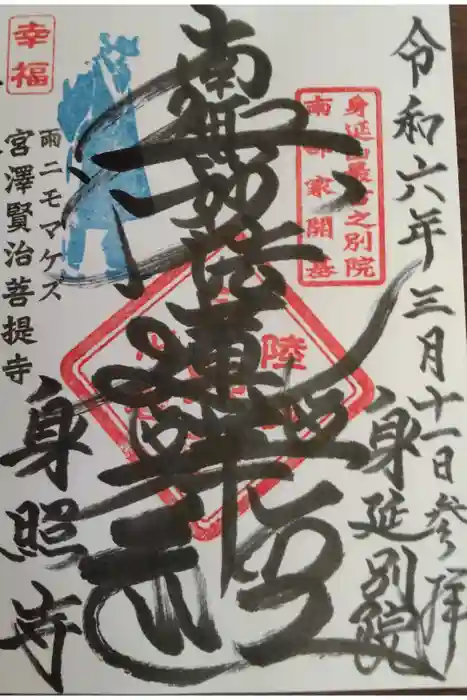 令和六年三月十一日参拝
身延別院
身延山最古之別院
南部家開基
南無妙法蓮華経
陸
幸福
雨ニモマケズ
宮澤賢治菩提寺
身照寺